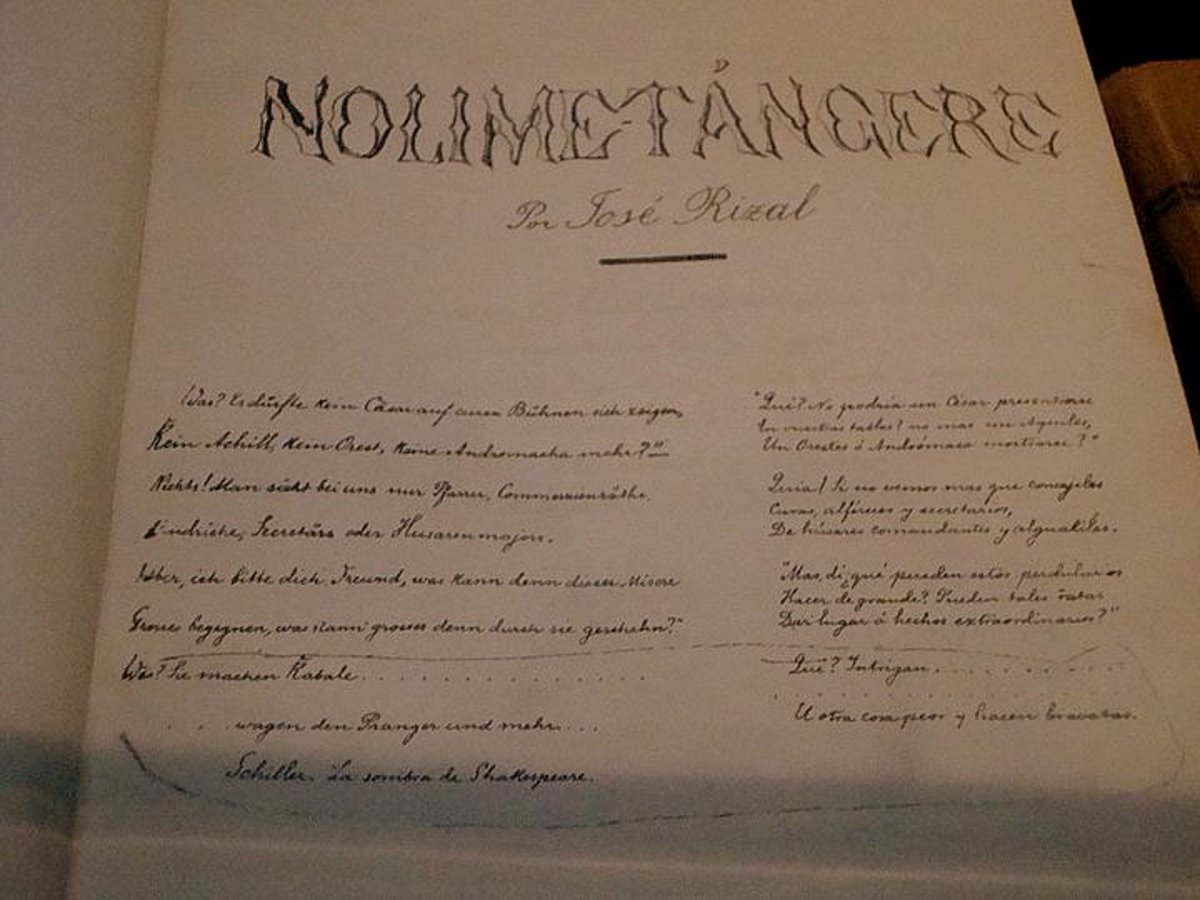 NOLI ME TÁNGERE
Por José Rizal
Was? Es dürfte kein Cäsar auf euren Bühnen sich zeigen,
Kein Achill, kein Orest, keine Andromacha mehr?"
Nichts! Man sieht bei uns nur Pfarrer, Commerzienräthe,
Fändriche, Secretärs oder Husarenmajors.
Aber, ich bitte dich, Freund, was kann denn dieser Misere
Grosses begegnen, was kann grosses denn durch sie geschehn?"
Was? Sie machen Kabale . . . . . . . . . . . . .
. . . wagen den Pranger und mehr. . . .
Schiller. La sombra de Shakespeare.
"Qué? No podría un César presentarse
En vuestras tablas? no mas un Aquiles,
Un Orestes ó Andrómaca mostrarse?"
Quiá! Si no vemos mas que concejales
Curas, alféreces y secretarios,
De húsares comandantes y alguaciles.
"Mas, dí, qué pueden estos perdularios
Hacer de grande? Pueden tales ratas
Dar lugar á hechos extraordinarios?"
Qué? Intrigan. . . . . . . . . . .
. . . . . . . . . . . . . . . . . . . .
U otra cosa peor y hacen bravatas.